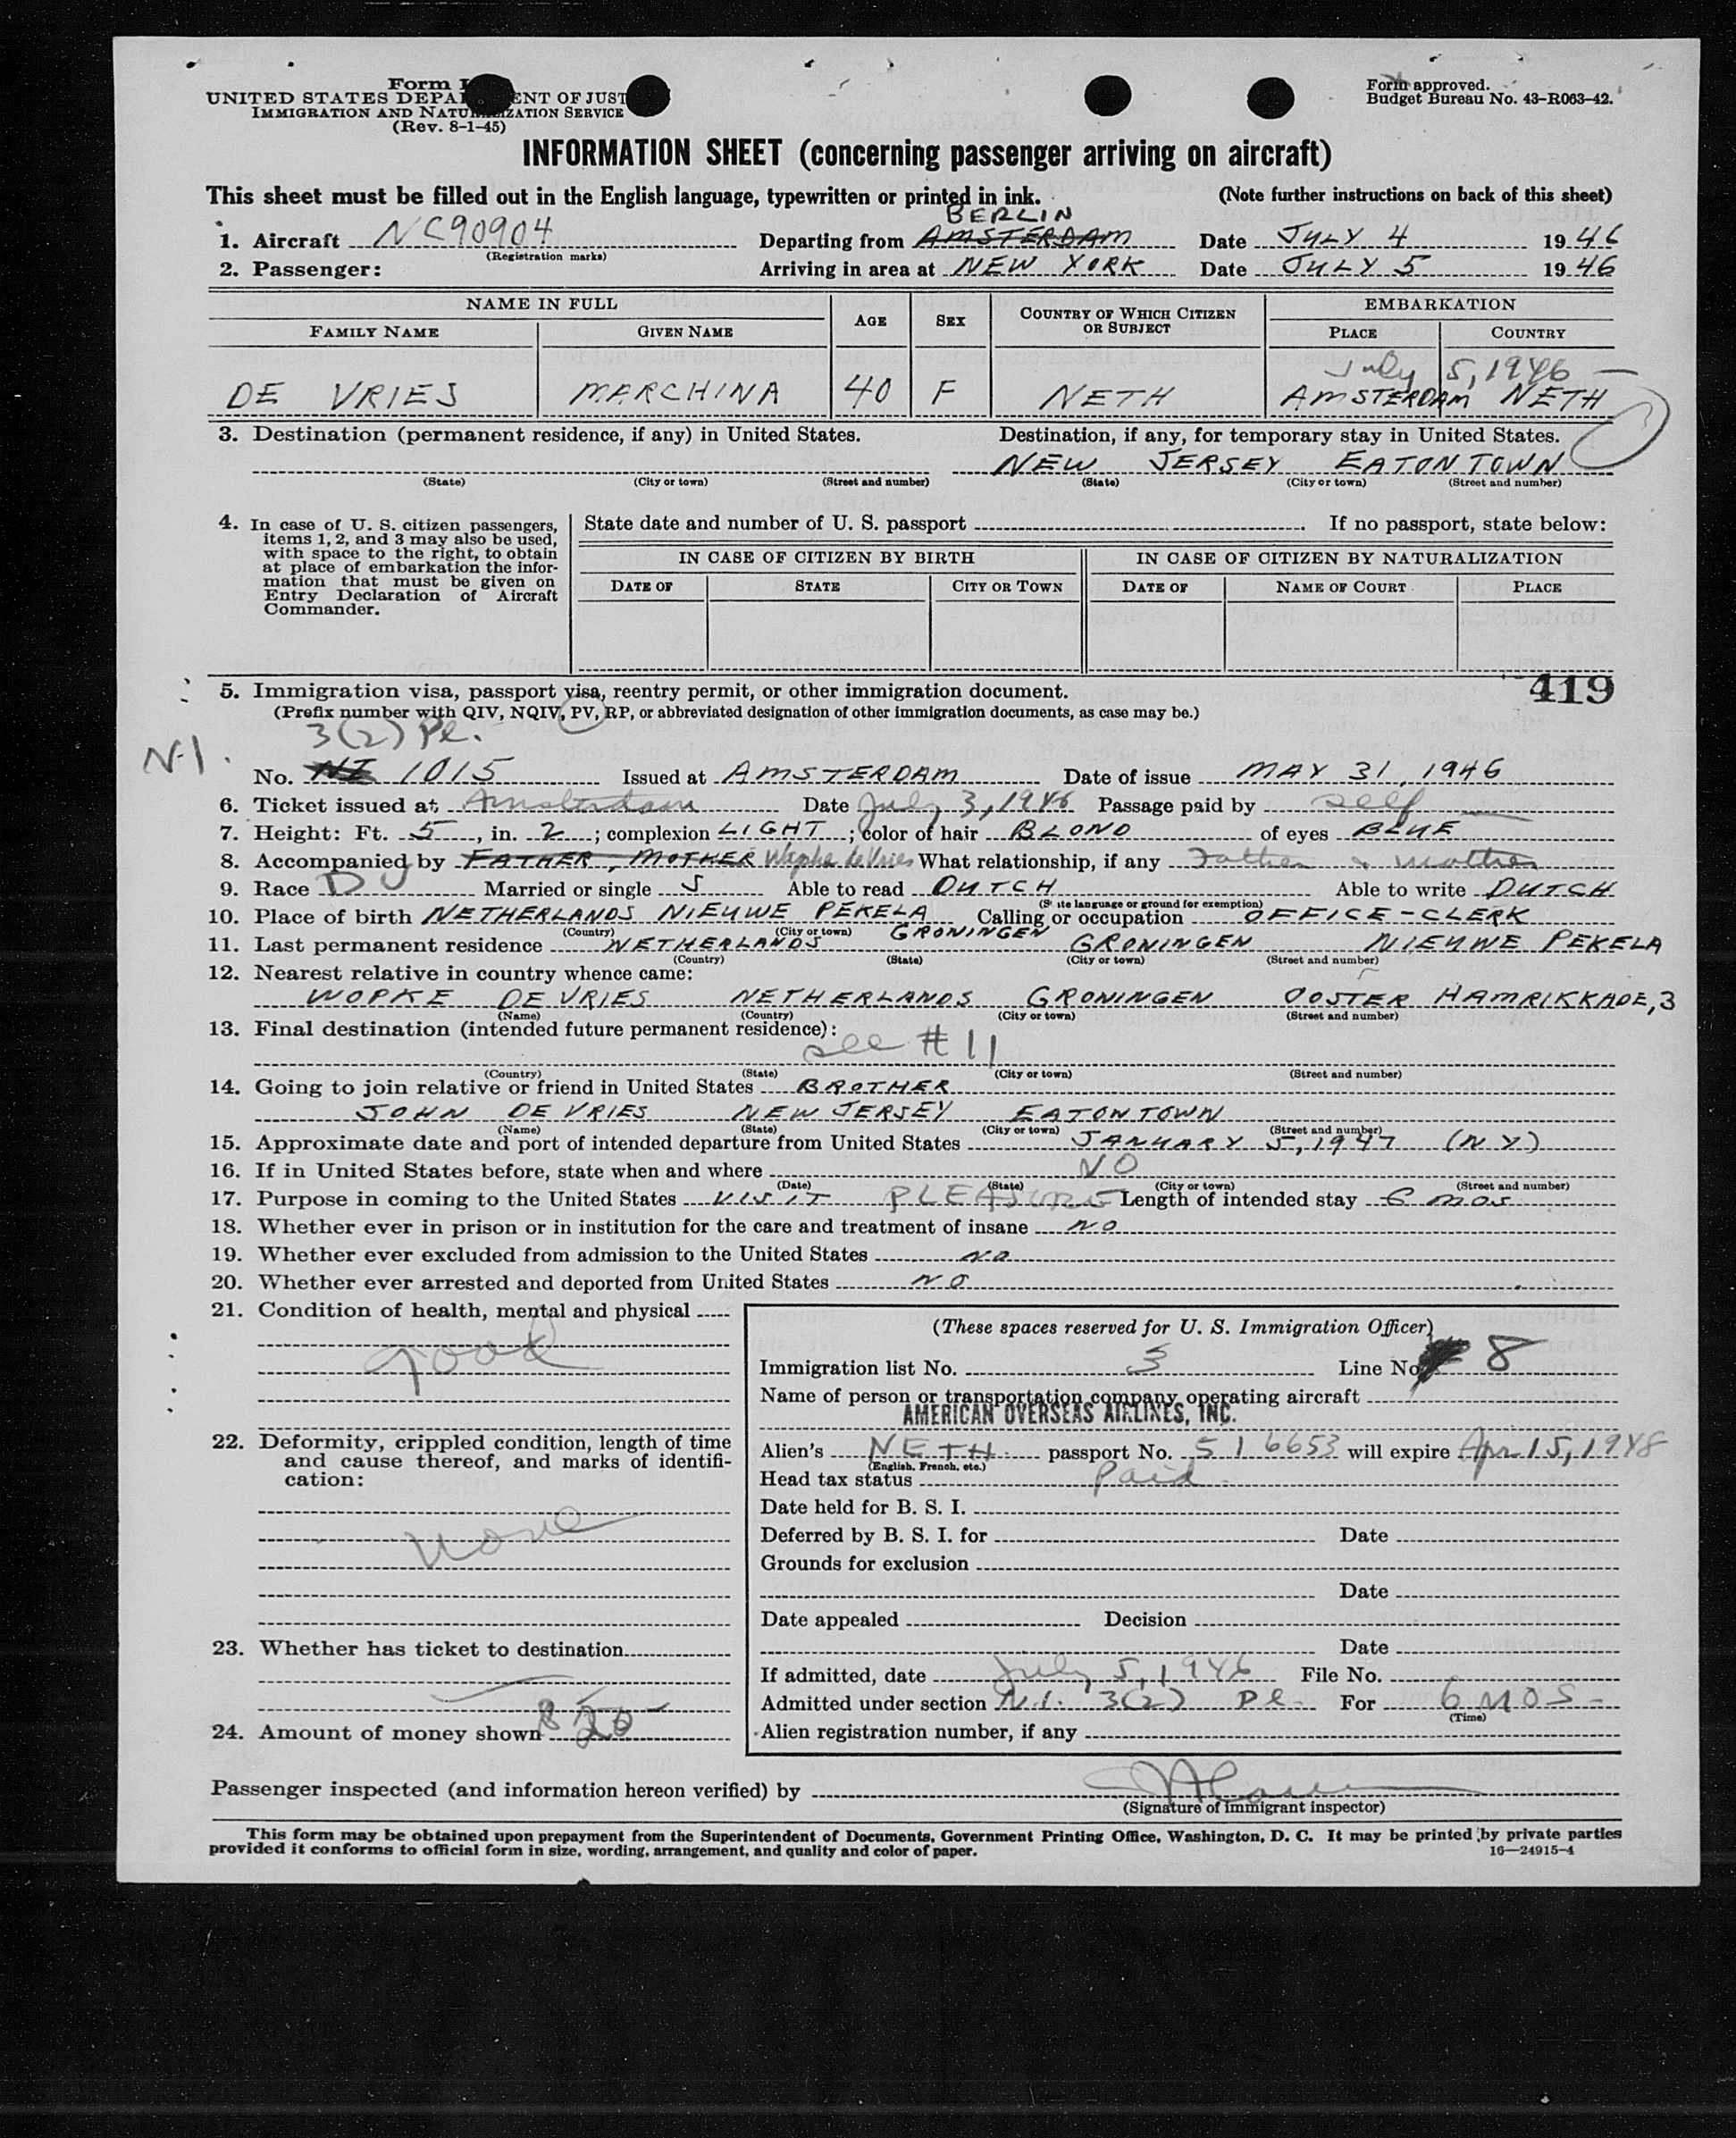 Form I
UNITED STATES DEPA ENT OF JUST
IMMIGRATION AND NATU IZATION SERVICE
(Rev. 8-1-45)
Form approved.
Budget Bureau No. 43-R063-42.
INFORMATION SHEET (concerning passenger arriving on aircraft)
This sheet must be filled out in the English language, typewritten or printed in ink. (Note further instructions on back of this sheet)
BERLIN
1. Aircraft NC90904 Departing from AMSTERDAM Date JULY 4 1946
(Registration marks)
2. Passenger: Arriving in area at NEW YORK Date JULY 5 1946
NAME IN FULL AGE SEX COUNTRY OF WHICH CITIZEN OR SUBJECT EMBARKATION
FAMILY NAME GIVEN NAME PLACE COUNTRY
July 5, 1946
DE VRIES MARCHINA 40 F NETH AMSTERDAM NETH
3. Destination (permanent residence, if any) in United States. Destination, if any, for temporary stay in United States.
NEW JERSEY EATONTOWN
(State) (City or town) (Street and number) (State) (City or town) (Street and number)
4. In case of U. S. citizen passengers,
items 1, 2, and 3 may also be used,
with space to the right, to obtain
at place of embarkation the infor-
mation that must be given on
Entry Declaration of Aircraft
Commander.
State date and number of U. S. passport If no passport, state below:
IN CASE OF CITIZEN BY BIRTH IN CASE OF CITIZEN BY NATURALIZATION
DATE OF STATE CITY OR TOWN DATE OF NAME OF COURT PLACE
419
5. Immigration visa, passport visa, reentry permit, or other immigration document.
(Prefix number with QIV, NQIV, PV, RP, or abbreviated designation of other immigration documents, as case may be.)
3(2) Pl.
N-I.
No. NI 1015 Issued at AMSTERDAM Date of issue MAY 31, 1946
6. Ticket issued at Amsterdam Date July 3, 1946 Passage paid by self
7. Height: Ft. 5, in. 2; complexion LIGHT; color of hair BLOND of eyes BLUE
8. Accompanied by FATHER, MOTHER de Vries What relationship, if any Father & mother
9. Race DU Married or single S Able to read DUTCH Able to write DUTCH
(State language or ground for exemption)
10. Place of birth NETHERLANDS NIEUWE PEKELA Calling or occupation OFFICE-CLERK
(Country) (City or town) GRONINGEN
11. Last permanent residence NETHERLANDS GRONINGEN NIEUWE PEKELA
(Country) (State) (City or town) (Street and number)
12. Nearest relative in country whence came:
WOPKE DE VRIES NETHERLANDS GRONINGEN OOSTER HAMRIKKADE, 3
(Name) (Country) (City or town) (Street and number)
13. Final destination (intended future permanent residence):
see # 11
(Country) (State) (City or town) (Street and number)
14. Going to join relative or friend in United States BROTHER
JOHN DE VRIES NEW JERSEY EATONTOWN
(Name) (State) (City or town) (Street and number)
15. Approximate date and port of intended departure from United States JANUARY 5, 1947 (N Y)
16. If in United States before, state when and where NO
(Date) (State) (City or town) (Street and number)
17. Purpose in coming to the United States VISIT PLEASURE Length of intended stay 6 MOS
18. Whether ever in prison or in institution for the care and treatment of insane NO
19. Whether ever excluded from admission to the United States NO
20. Whether ever arrested and deported from United States NO
21. Condition of health, mental and physical
good
22. Deformity, crippled condition, length of time
and cause thereof, and marks of identifi-
cation:
None
23. Whether has ticket to destination
24. Amount of money shown
(These spaces reserved for U. S. Immigration Officer)
Immigration list No. 3 Line No. 8
Name of person or transportation company operating aircraft
AMERICAN OVERSEAS AIRLINES, INC.
Alien's NETH. passport No. 516653 will expire Apr 15, 1948
(English, French, etc.)
Head tax status Paid
Date held for B. S. I.
Deferred by B. S. I. for Date
Grounds for exclusion
Date
Date appealed Decision
Date
If admitted, date July 5, 1946 File No.
Admitted under section N.I. 3(2) Pl. For 6 MOS
(Time)
Alien registration number, if any
Passenger inspected (and information hereon verified) by
(Signature of immigrant inspector)
This form may be obtained upon prepayment from the Superintendent of Documents, Government Printing Office, Washington, D. C. It may be printed by private parties
provided it conforms to official form in size, wording, arrangement, and quality and color of paper. 16—24915-4